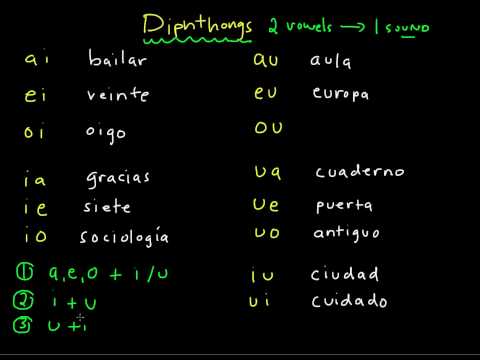 Diphthongs 2 vowels → 1 sound
ai bailar au aula
ei veinte eu europa
oi oigo ou
ia gracias ua cuaderno
ie siete ue puerta
io sociología uo antiguo
① a,e,o + i/u iu ciudad
② i + u ui cuidado
③ u + i